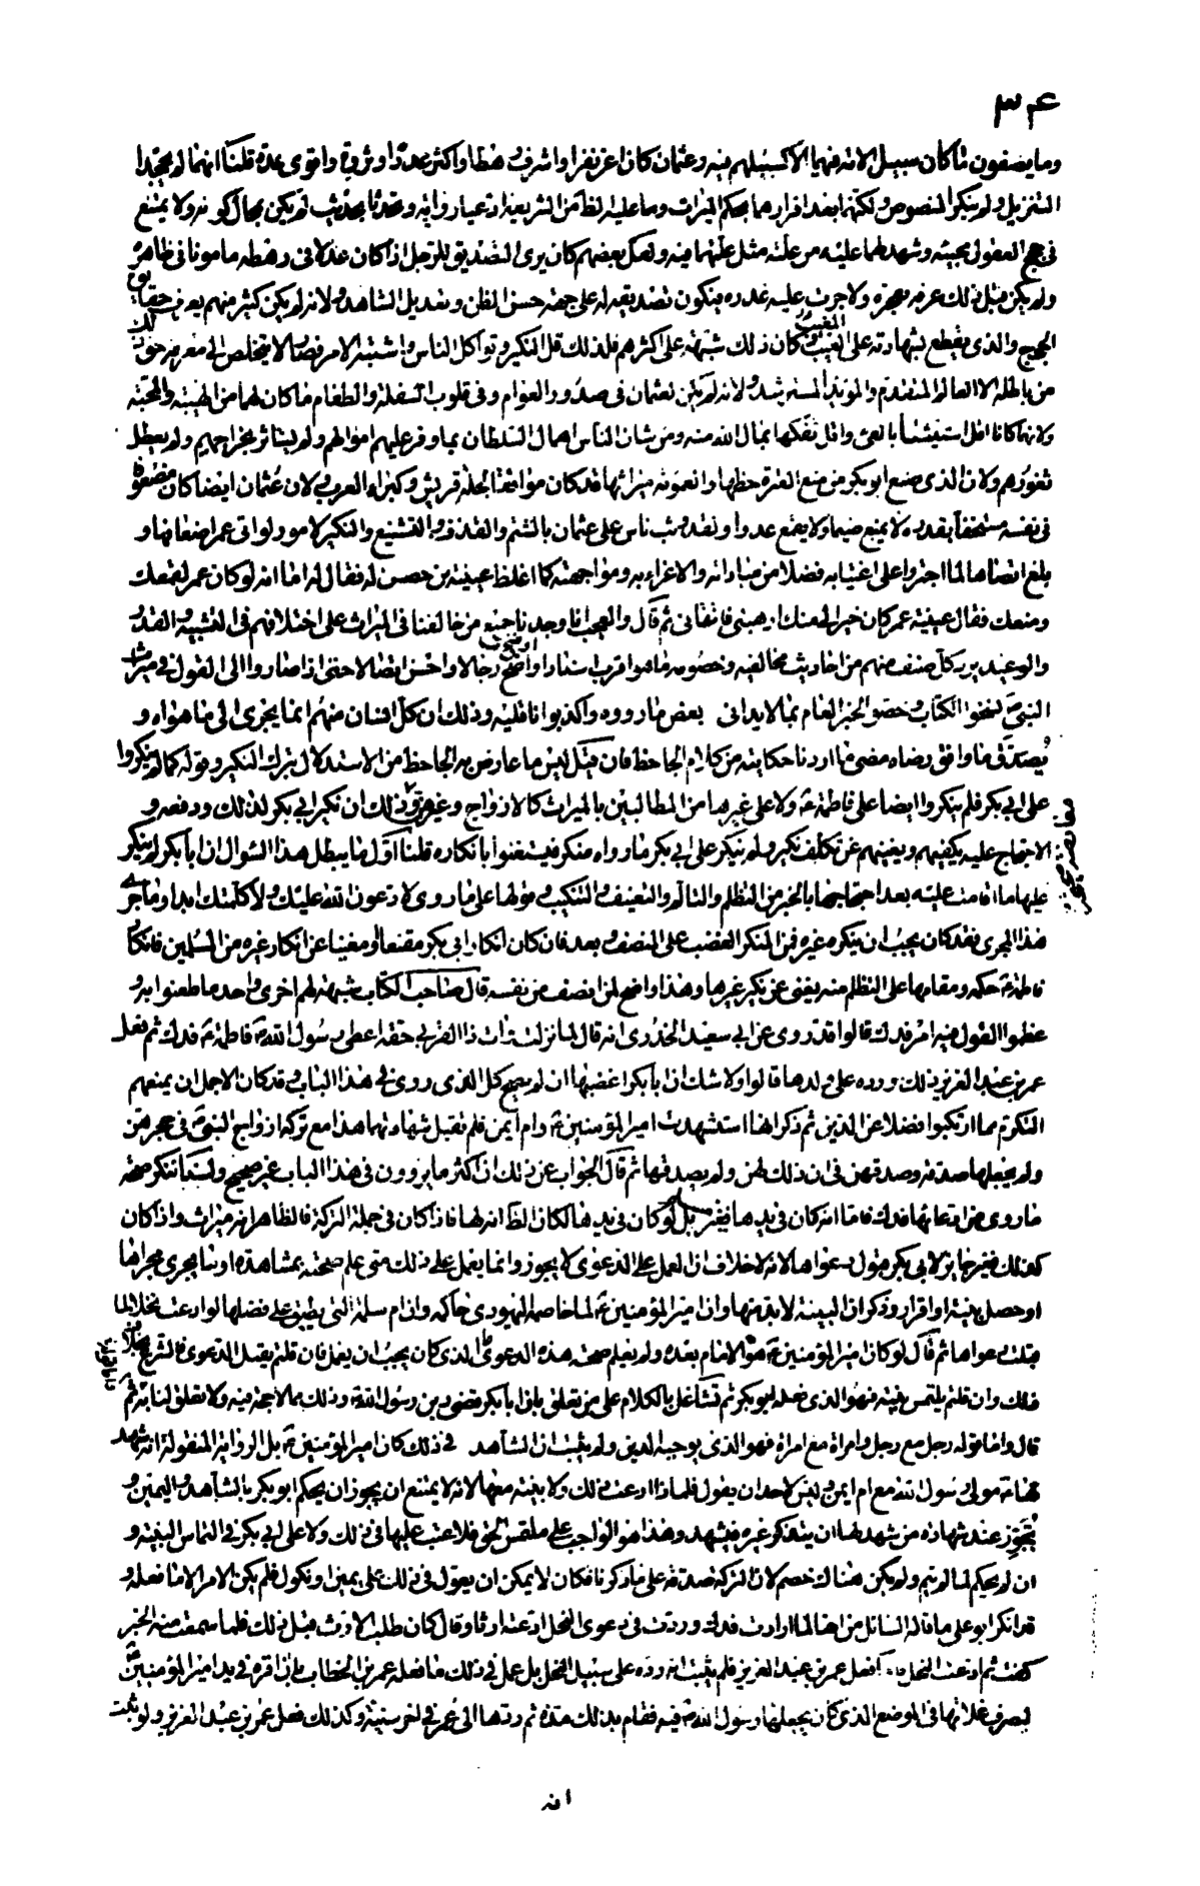 وما يصفون ما كان سبيل الامة فيهما الا كسبيلهم فيه وعثمان كان اعز نفرا واشرف رهطا واكثر عددا وثروة واقوى عدة قلنا انهما لم يجحدا
التنزيل ولم ينكرا المنصوص ولكنهما بعد اقرارهما بحكم الميراث وما عليه الظاهر من الشريعة ادعيا رواية وتحدثا بحديث لم يكن بحال كونه ولا يمتنع
فى حجج العقول مجيئه وشهد لهما عليه من علته مثل علتهما فيه ولعل بعضهم كان يرى التصديق للرجل اذا كان عدلا فى رهطه مامونا فى ظاهره
ولم يكن قبل ذلك عرفه بفجرة ولا جرت عليه غدرة فيكون تصديقه له على جهة حسن الظن وتعديل الشاهد ولانه لم يكن كثير منهم يعرف حقايق
الحجج والذى يقطع بشهادته على الغيب وكان ذلك شبهة على اكثرهم فلذلك قل النكير وتواكل الناس واشتبه الامر فصار لا يتخلص الى معرفة حق ذلك
من باطله الا العالم المتقدم والمؤيد المسترشد ولانه لم يكن لعثمان فى صدور العوام وفى قلوب السفلة والطغام ما كان لهما من الهيبة والمحبة
ولانهما كانا اقل استيثارا بالفئ واقل تفكها بمال الله منه ومن شان الناس اهمال السلطان ما وفر عليهم اموالهم ولم يستاثر بخراجهم ولم يعطل
ثغورهم ولان الذى صنع ابو بكر من منع العترة حظها والعمومة ميراثها قد كان موافقا لجلة قريش وكبراء العرب ولان عثمان ايضا كان مضعوفا
فى نفسه مستخفا بقدره لا يمنع ضيما ولا يقمع عدوا ولقد وثب ناس على عثمان بالشتم والقذف والتشنيع والنكير لامور لو اتى عمر اضعافها و
بلغ اقصاها لما اجترؤا على اغتيابه فضلا من مباداته والاغراء به ومواجهته كما اغلظ عيينة بن حصن له فقال له اما انه لو كان عمر لقمعك
ومنعك فقال عيينة عمر كان خيرا لى منك ارهبنى فاتقانى ثم قال والعجب انا وجدنا جميع من خالفنا فى الميراث على اختلافهم فى التشبيه والقدر
والوعيد يرد كل صنف منهم من احاديث مخالفيه وخصومه ما هو اقرب اسنادا واوضح رجالا واحسن اتصالا حتى اذا صاروا الى القول فى ميراث
النبى ص نسخوا الكتاب وخصوا الخبر العام بما لا يدانى بعض ما رووه واكذبوا ناقليه وذلك ان كل انسان منهم انما يجرى الى ما هواه و
يصدق ما وافق رضاه مضى ما اردنا حكايته من كلام الجاحظ فان قيل ليس ما عارض به الجاحظ من الاستدلال بترك النكير وقوله كما لم ينكروا
على ابى بكر فلم ينكروا ايضا على فاطمة ع ولا على غيرها من المطالبين بالميراث كالازواج وغيرهن وذلك ان نكير ابى بكر لذلك ودفعه و
الاحتجاج عليه يكفيهم ويغنيهم عن تكلف نكير ولم ينكر على ابى بكر ما رواه منكر فيستغنوا بانكاره قلنا اول ما يبطل هذا السؤال ان ابا بكر لم ينكر
عليها ما اقامت عليه بعد احتجاجها بالخبر من التظلم والتالم والتعنيف والتبكيت وقولها على ما روى لادعون الله عليك ولا كلمتك ابدا وما جرى
هذا المجرى فقد كان يجب ان ينكره غيره فمن المنكر الغضب على المنصف وبعد فان كان انكار ابى بكر مقنعا او مغنيا عن انكار غيره من المسلمين فانكار
فاطمة ع حكمه ومقامها على التظلم منه يغنى عن نكير غيرها وهذا واضح لمن انصف من نفسه قال صاحب الكتاب شبهة لهم اخرى واحد ما طعنوا به و
عظموا القول فيه امر فدك قالوا قد روى عن ابى سعيد الخدرى انه قال لما نزلت وات ذا القربى حقه اعطى رسول الله ص فاطمة ع فدك ثم فعل
عمر بن عبد العزيز ذلك ورده على ولدها قالوا ولا شك ان ابا بكر اغضبها ان لم يصح كل الذى روى فى هذا الباب وقد كان الاجمل ان يمنعهم
التكرم مما ارتكبوا فضلا عن الدين ثم ذكر انها استشهدت امير المؤمنين ع وام ايمن فلم تقبل شهادتهما هذا مع تركه ازواج النبى ص فى حجرهن
ولم يجعلها صدقة وصدقهن فى ان ذلك لهن ولم يصدقها ثم قال الجواب عن ذلك ان اكثر ما يروون فى هذا الباب غير صحيح ولسنا ننكر صحة
ما روى من ادعائها فدك فاما انه كان فى يدها فغير مسلم بل لو كان فى يدها لكان الظاهر انه لها فاذا كان فى جملة التركة فالظاهر انه ميراث واذا كان
كذلك فغير جائز لابى بكر قبول دعواها لانه لا خلاف ان العمل على الدعوى لا يجوز وانما يعمل على ذلك متى علم صحته بمشاهدة او ما يجرى مجراها
او حصل بينة او اقرار وذكر ان البينة لا بد منها وان امير المؤمنين ع لما خاصمه اليهودى حاكمه وان ام سلمة التى يطبق على فضلها لو ادعت نحلا لما
قبلت دعواها ثم قال لو كان امير المؤمنين ع هو الامام بعده ولم يعلم صحة هذه الدعوى ما الذى كان يجب ان يفعل فان قلتم يقبل الدعوى فالشرع بخلاف
ذلك وان قلتم يلتمس بينة فهو الذى فعله ابو بكر ثم تشاغل بالكلام على من تعلق بان ابا بكر قضى دين رسول الله ص وذلك مما لا حجة فيه ولا تعلق لنا به ثم
قال واما قوله رجل مع رجل وامراة مع امراة فهو الذى يوجبه الدين ولم يثبت ان الشاهد فى ذلك كان امير المؤمنين ع بل الرواية المنقولة انه شهد
لها مولى رسول الله مع ام ايمن وليس لاحد ان يقول فلماذا ادعت ذلك ولا بينة معها لانه لا يمتنع ان يجوز ان يحكم ابو بكر بالشاهد واليمين و
تجوز عند شهادة من شهد لها ان يتذكر غيره فيشهد وهذا هو الواجب على ملتمس الحق فلا عتب عليها فى ذلك ولا على ابى بكر فى التماس البينة و
ان لم يحكم لما لم يتم ولم يكن هناك خصم لان التركة صدقة على ما ذكرنا فكان لا يمكن ان يعول فى ذلك على يمين او نكول فلم يكن الامر الا ما فعله و
قد انكر ابو على ما قاله السائل من انها لما ارادت فدك وردت فى دعوى النحل ادعته ارثا وقال كان طلب الارث قبل ذلك فلما سمعت منه الخبر
كفت ثم ادعت النحل فاما فعل عمر بن عبد العزيز فلم يثبت انه رده على سبيل النحل بل عمل فى ذلك ما فعله عمر بن الخطاب بان اقره فى يد امير المؤمنين ع
ليصرف غلاتها فى الموضع الذى كان يجعلها رسول الله ص فيه فقام بذلك مدة ثم ردها الى عمر فى اخر سنيه وكذلك فعل عمر بن عبد العزيز ولو ثبت
انه